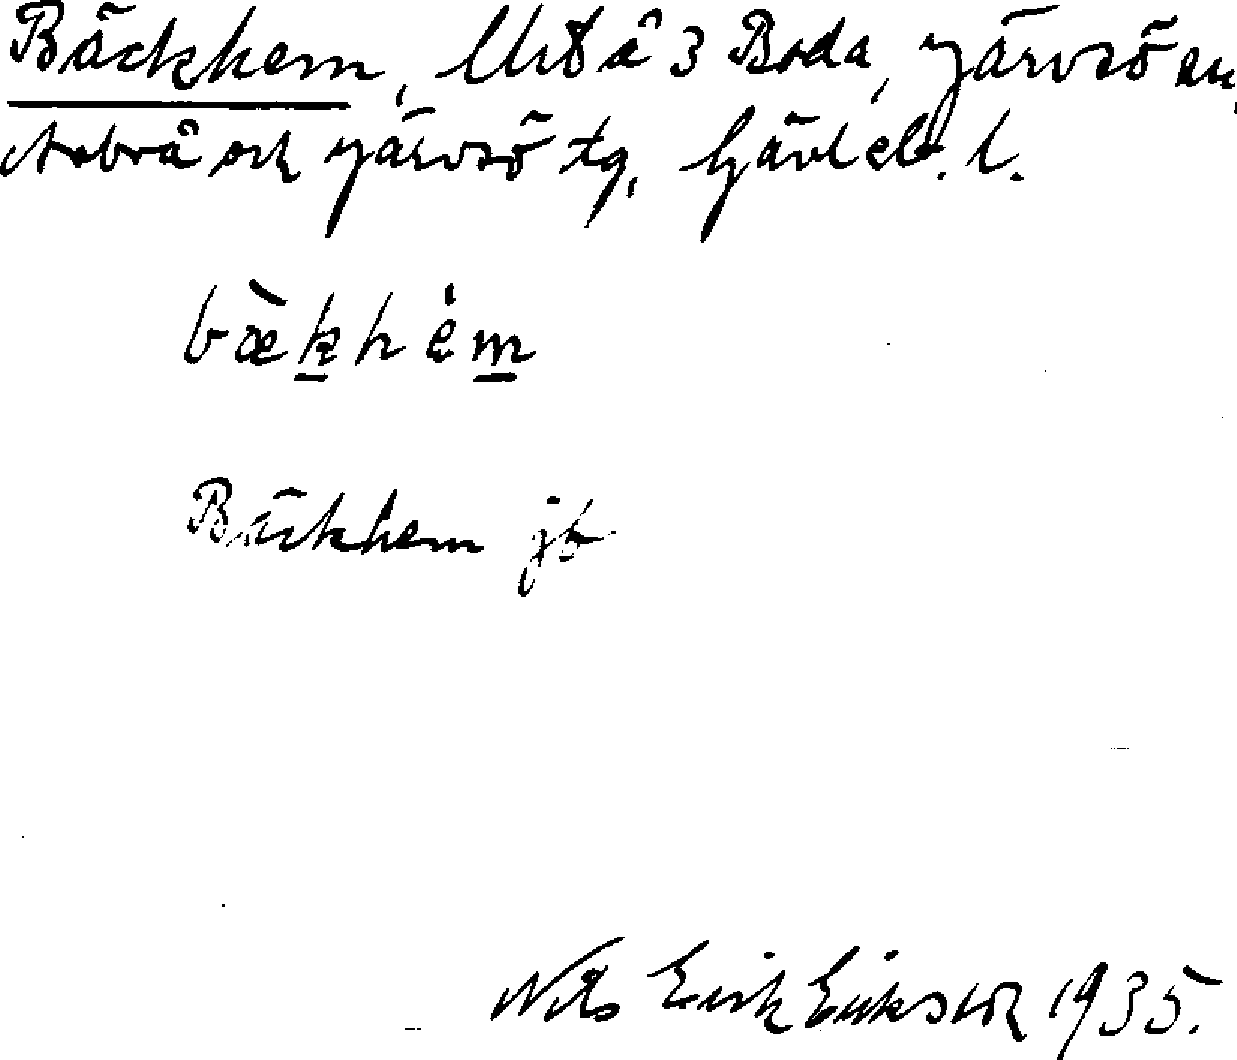 Bäckhem, Urå 3 Boda, Järvsö sn,
Arbrå och Järvsö tg, Gävleb. l.
bæ̀khèm
Bäckhem jb
Nils Erik Eriksson 1935.